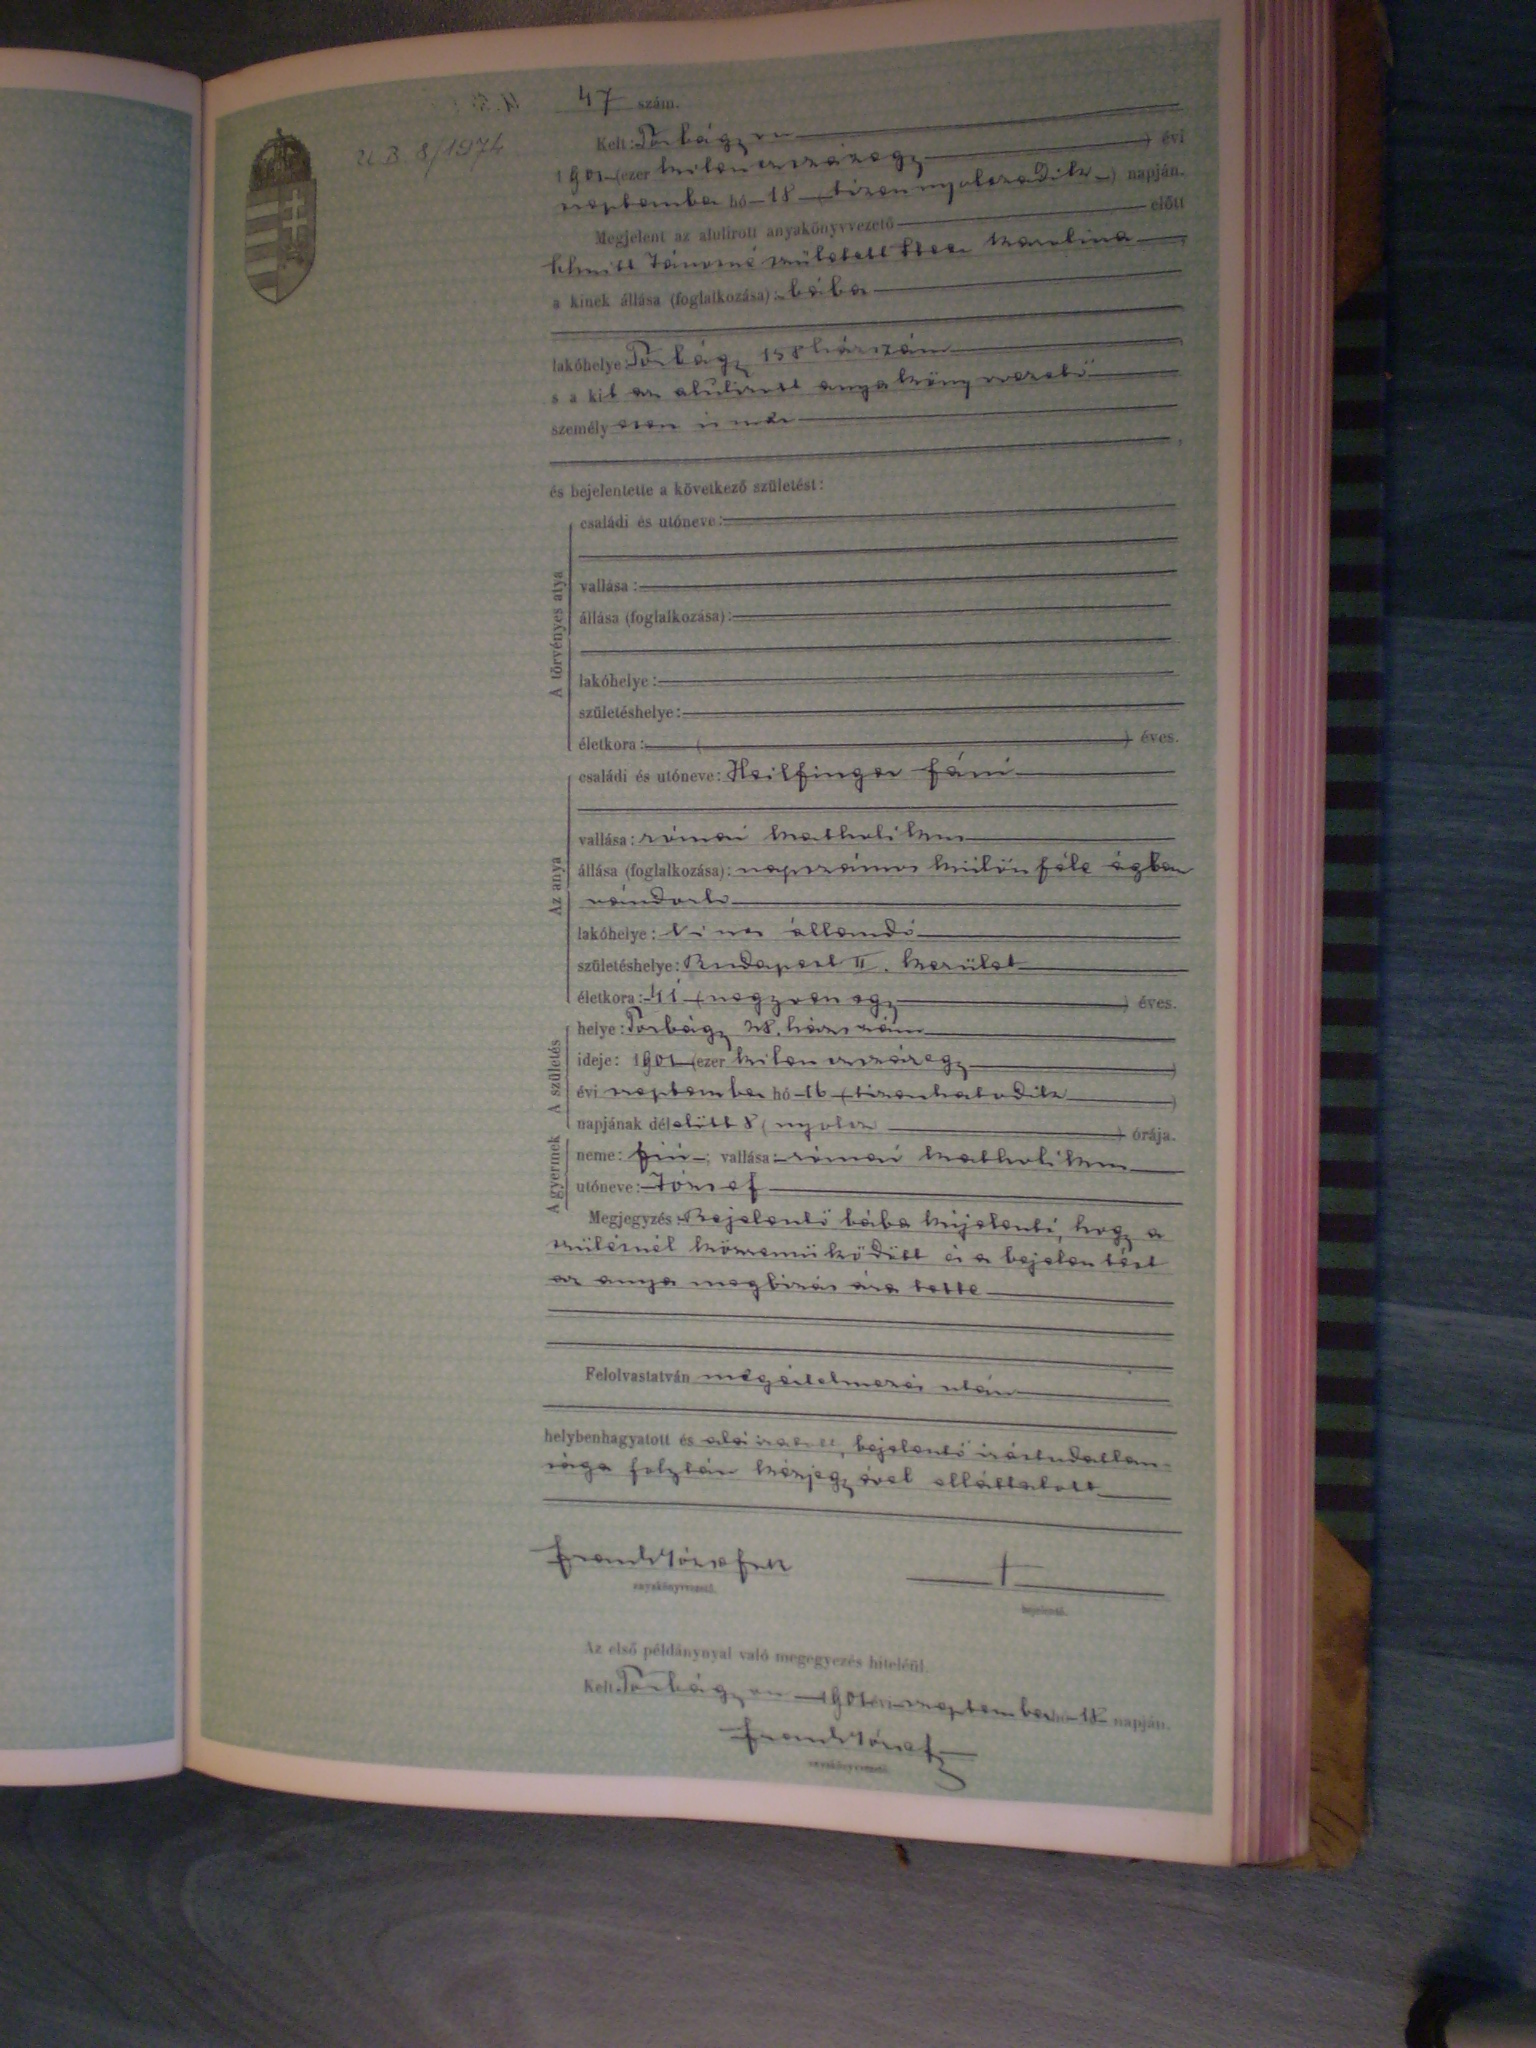 47 szám.
U.B. 8/1974
Kelt: Torbágyon
1901 (ezer kilenczszázegy) évi
szeptember hó 18 (tizennyolczadik) napján.
Megjelent az alulirott anyakönyvvezető előtt
Schmitt Jánosné született Karolina
a kinek állása (foglalkozása): bába
lakóhelye: Torbágy 158 házszám
s a kit az alulirott anyakönyvvezető
személyesen ismer
és bejelentette a következő születést:
A törvényes atya
családi és utóneve:
vallása:
állása (foglalkozása):
lakóhelye:
születéshelye:
életkora: ( ) éves.
Az anya
családi és utóneve: Heilfinger Fáni
vallása: római katholikus
állása (foglalkozása): napszámos különféle ágban
vándorló
lakóhelye: Nincs állandó
születéshelye: Budapest II. kerület
életkora: 41 (negyvenegy) éves.
A születés
helye: Torbágy 28. házszám
ideje: 1901 (ezer kilenczszázegy)
évi szeptember hó 16 (tizenhatodik)
napjának délelőtt 8 (nyolcz) órája.
A gyermek
neme: fiú; vallása: római katholikus
utóneve: József
Megjegyzés: Bejelentő bába kijelenti, hogy a
szülésnél közreműködött és a bejelentést
az anya megbizására tette
Felolvastatván megértelmezés után
helybenhagyatott és aláiratott, bejelentő irástudatlan-
sága folytán kézjegyével elláttatott
Frank József
anyakönyvvezető.
+
bejelentő.
Az első példánynyal való megegyezés hiteléül.
Kelt Torbágyon 1901 évi szeptember hó 18 napján.
Frank József
anyakönyvvezető.